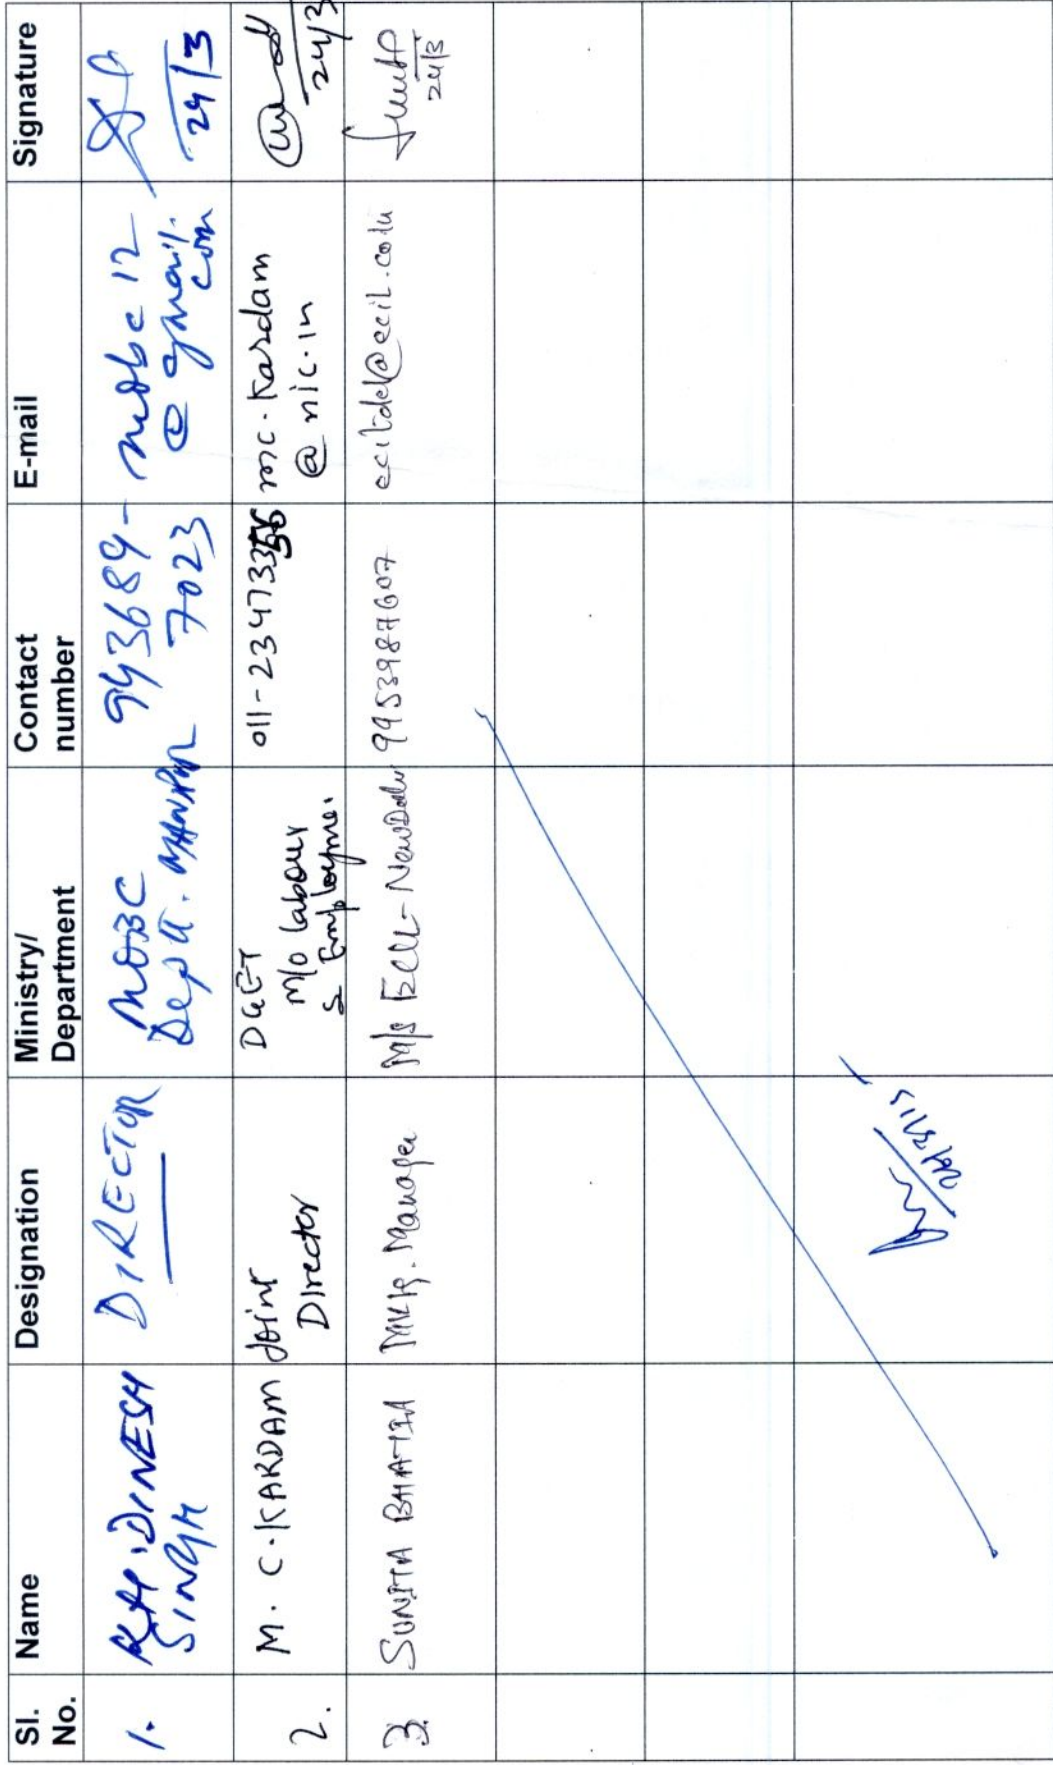 Sl. No. Name Designation Ministry/ Department Contact number E-mail Signature
1. KH. DINESH SINGH DIRECTOR MOBC Deptt. MANIPUR 943689-7023 mobc12@gmail.com 24/3
2. M. C. KARDAM Joint Director DGET M/o Labour & Employme. 011-233473 mc.kardam@nic.in 24/3
3. SUNITA BHATIA Mktg. Manager M/s ECIL-New Delhi 9953987607 ecildel@ecil.co.in 24/3